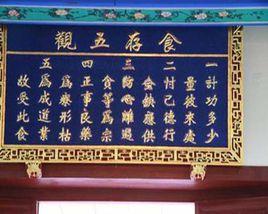 食存五觀
一計功多少
量彼來處
二忖己德行
全缺應供
三防心離過
貪等為宗
四正事良藥
為療形枯
五為成道業
故受此食